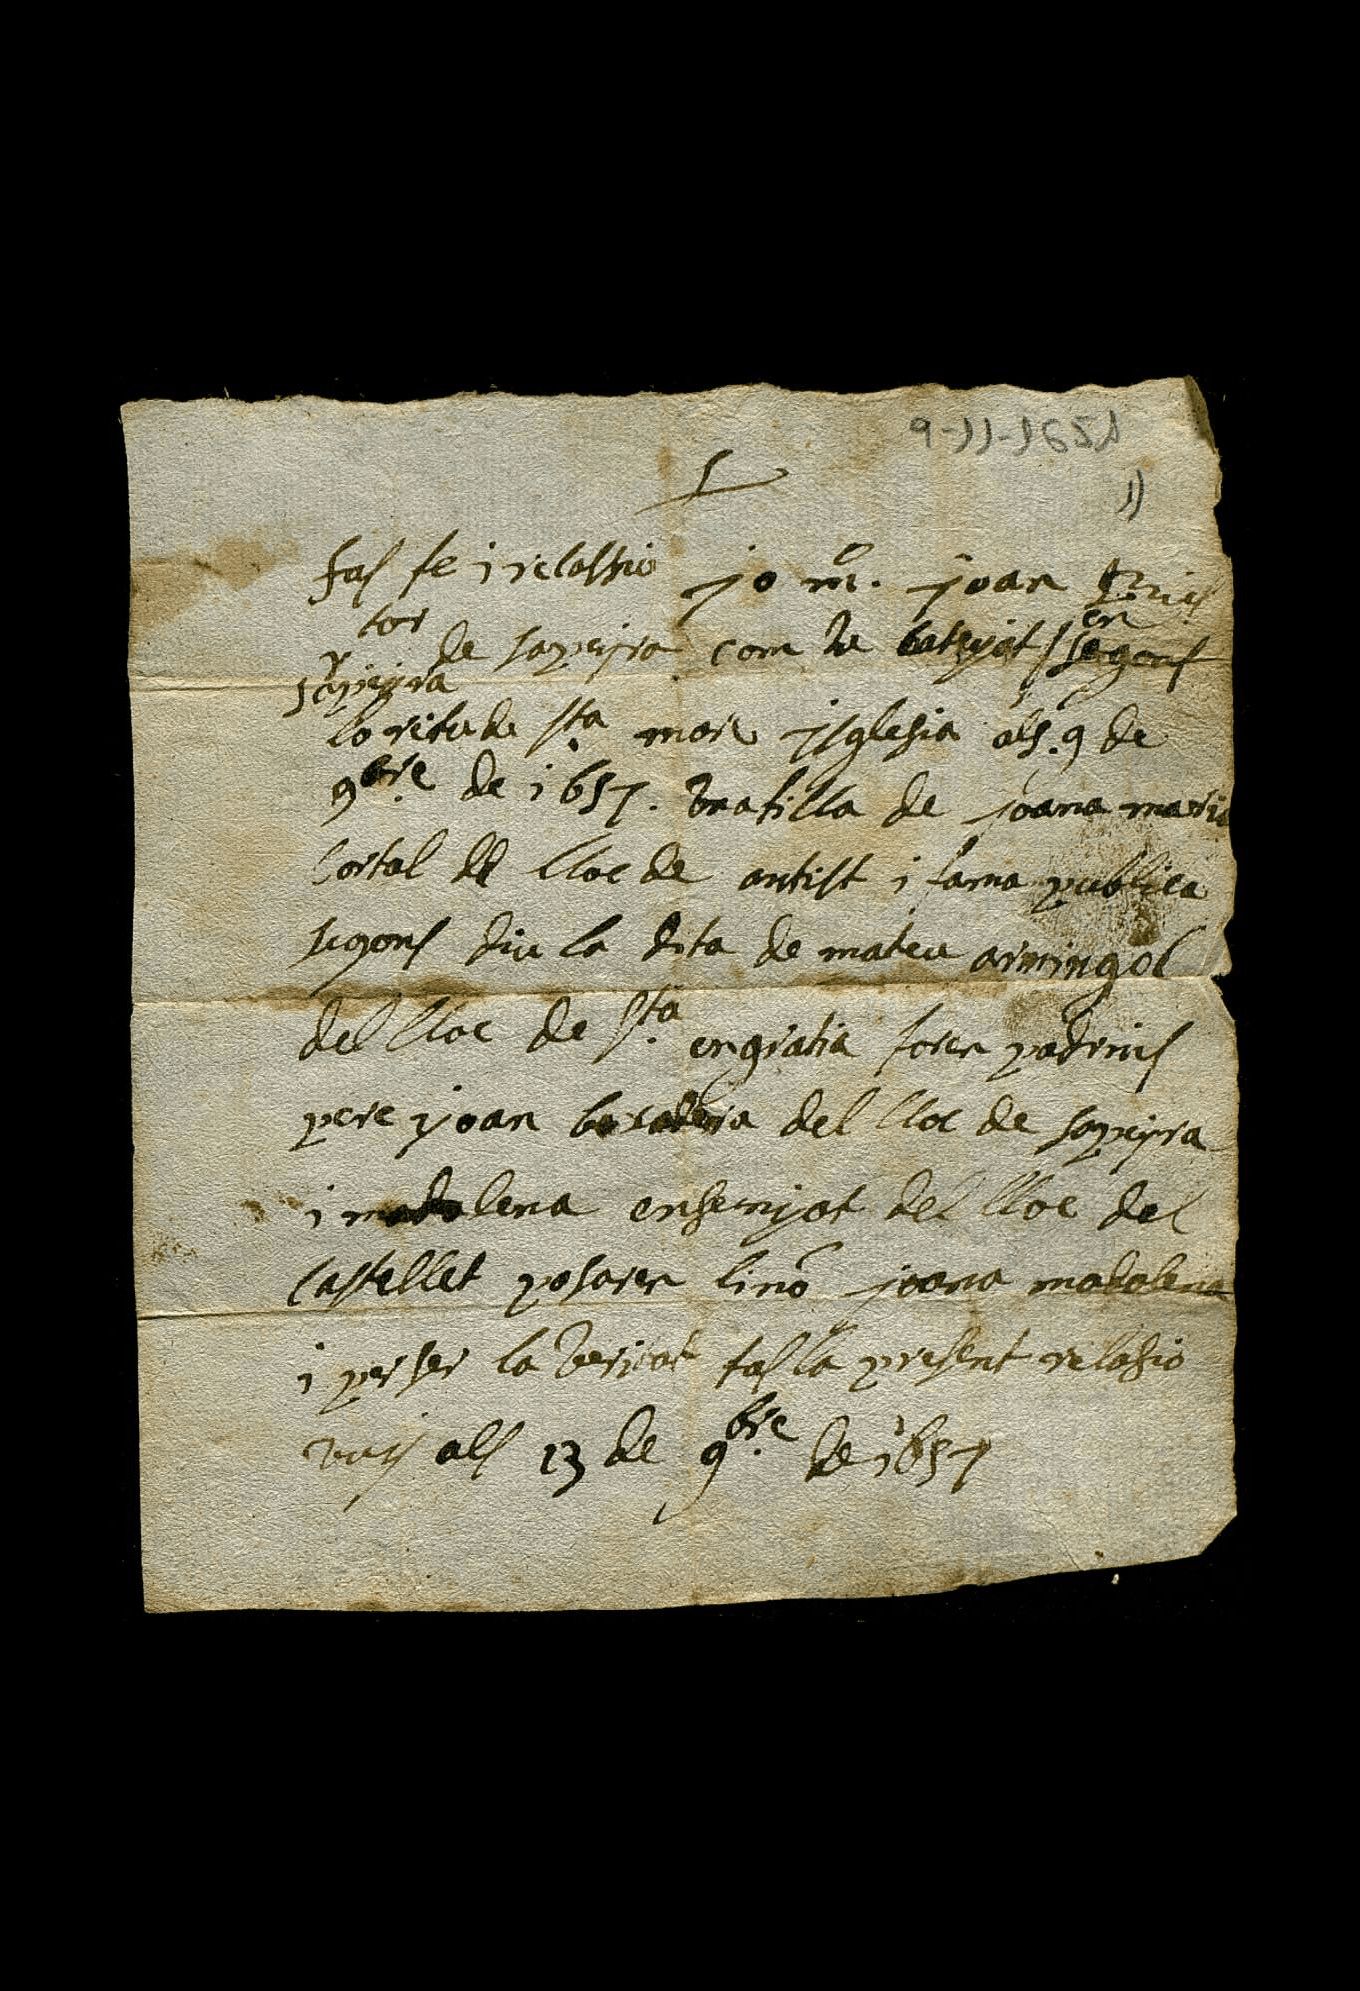 9-11-1651
1)
fas fe i relassio jo mº. joan
tor de sapeyra com he batejat en
sapeyra segons
lo ritu de sta mare isglesia als 9 de
9bre de 1657. una filla de joana maria
Cortal del lloc de antist i fama publica
segons diu la dita de mateu armingol
del lloc de sta engratia foren padrins
pere joan del lloc de sapeyra
i madalena ensenjat del lloc del
Castellet posaren li nō joana madalena
i per ser la veritat fas la present relasio
vuy als 13 de 9bre de 1657